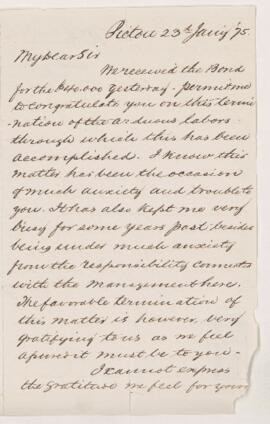 Pictou 23d Jany '75.
My dear Sir
We received the Bond
for the $40.000 yesterday - permit me
to congratulate you on this termi-
-nation of the arduous labors
through which this has been
accomplished. I know this
matter has been the occasion
of much anxiety and trouble to
you. It has also kept me very
busy for some years past besides
being under much anxiety
from the responsibility connects
with the management here.
The favorable termination of
this matter is however, very
gratifying to us as we feel
assured it must be to you -
I cannot express
the gratitude we feel for your